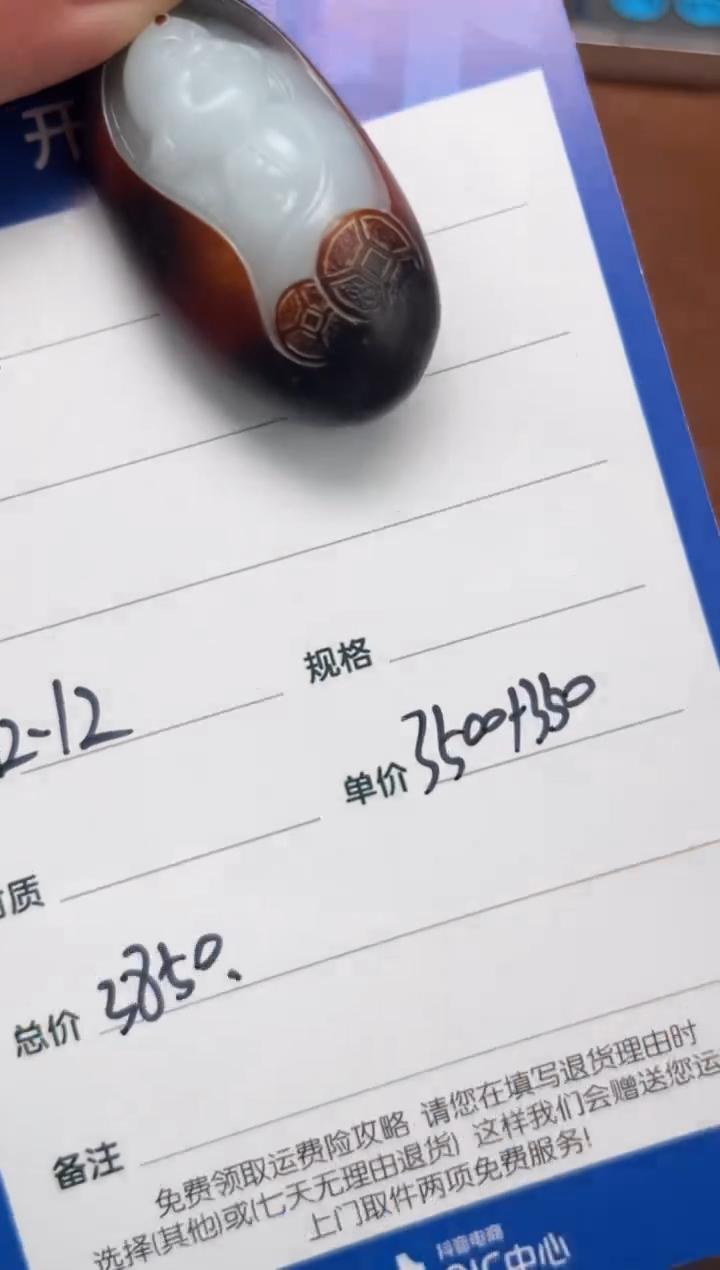 开
规格
2-12
单价 3500+350
质
总价 3850.
备注
免费领取运费险攻略 请您在填写退货理由时
选择(其他)或(七天无理由退货) 这样我们会赠送您运
上门取件两项免费服务!
抖音电商
QIC中心